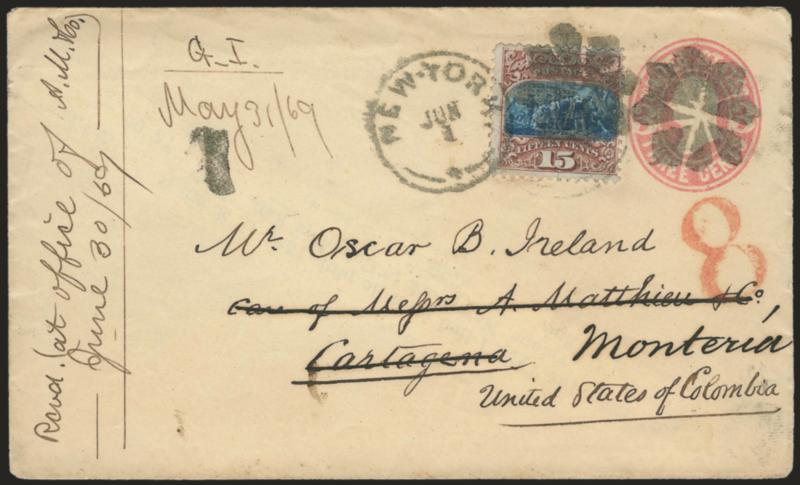 G. I.
May 31/69
NEW-YORK
JUN
1
FIFTEEN CENTS
15
THREE CENTS
8
Mr. Oscar B. Ireland
Care of Messrs A. Matthieu & Co,
Cartagena Montería
United States of Colombia
Recvd. (at office of A.M.&Co.)
June 30/69